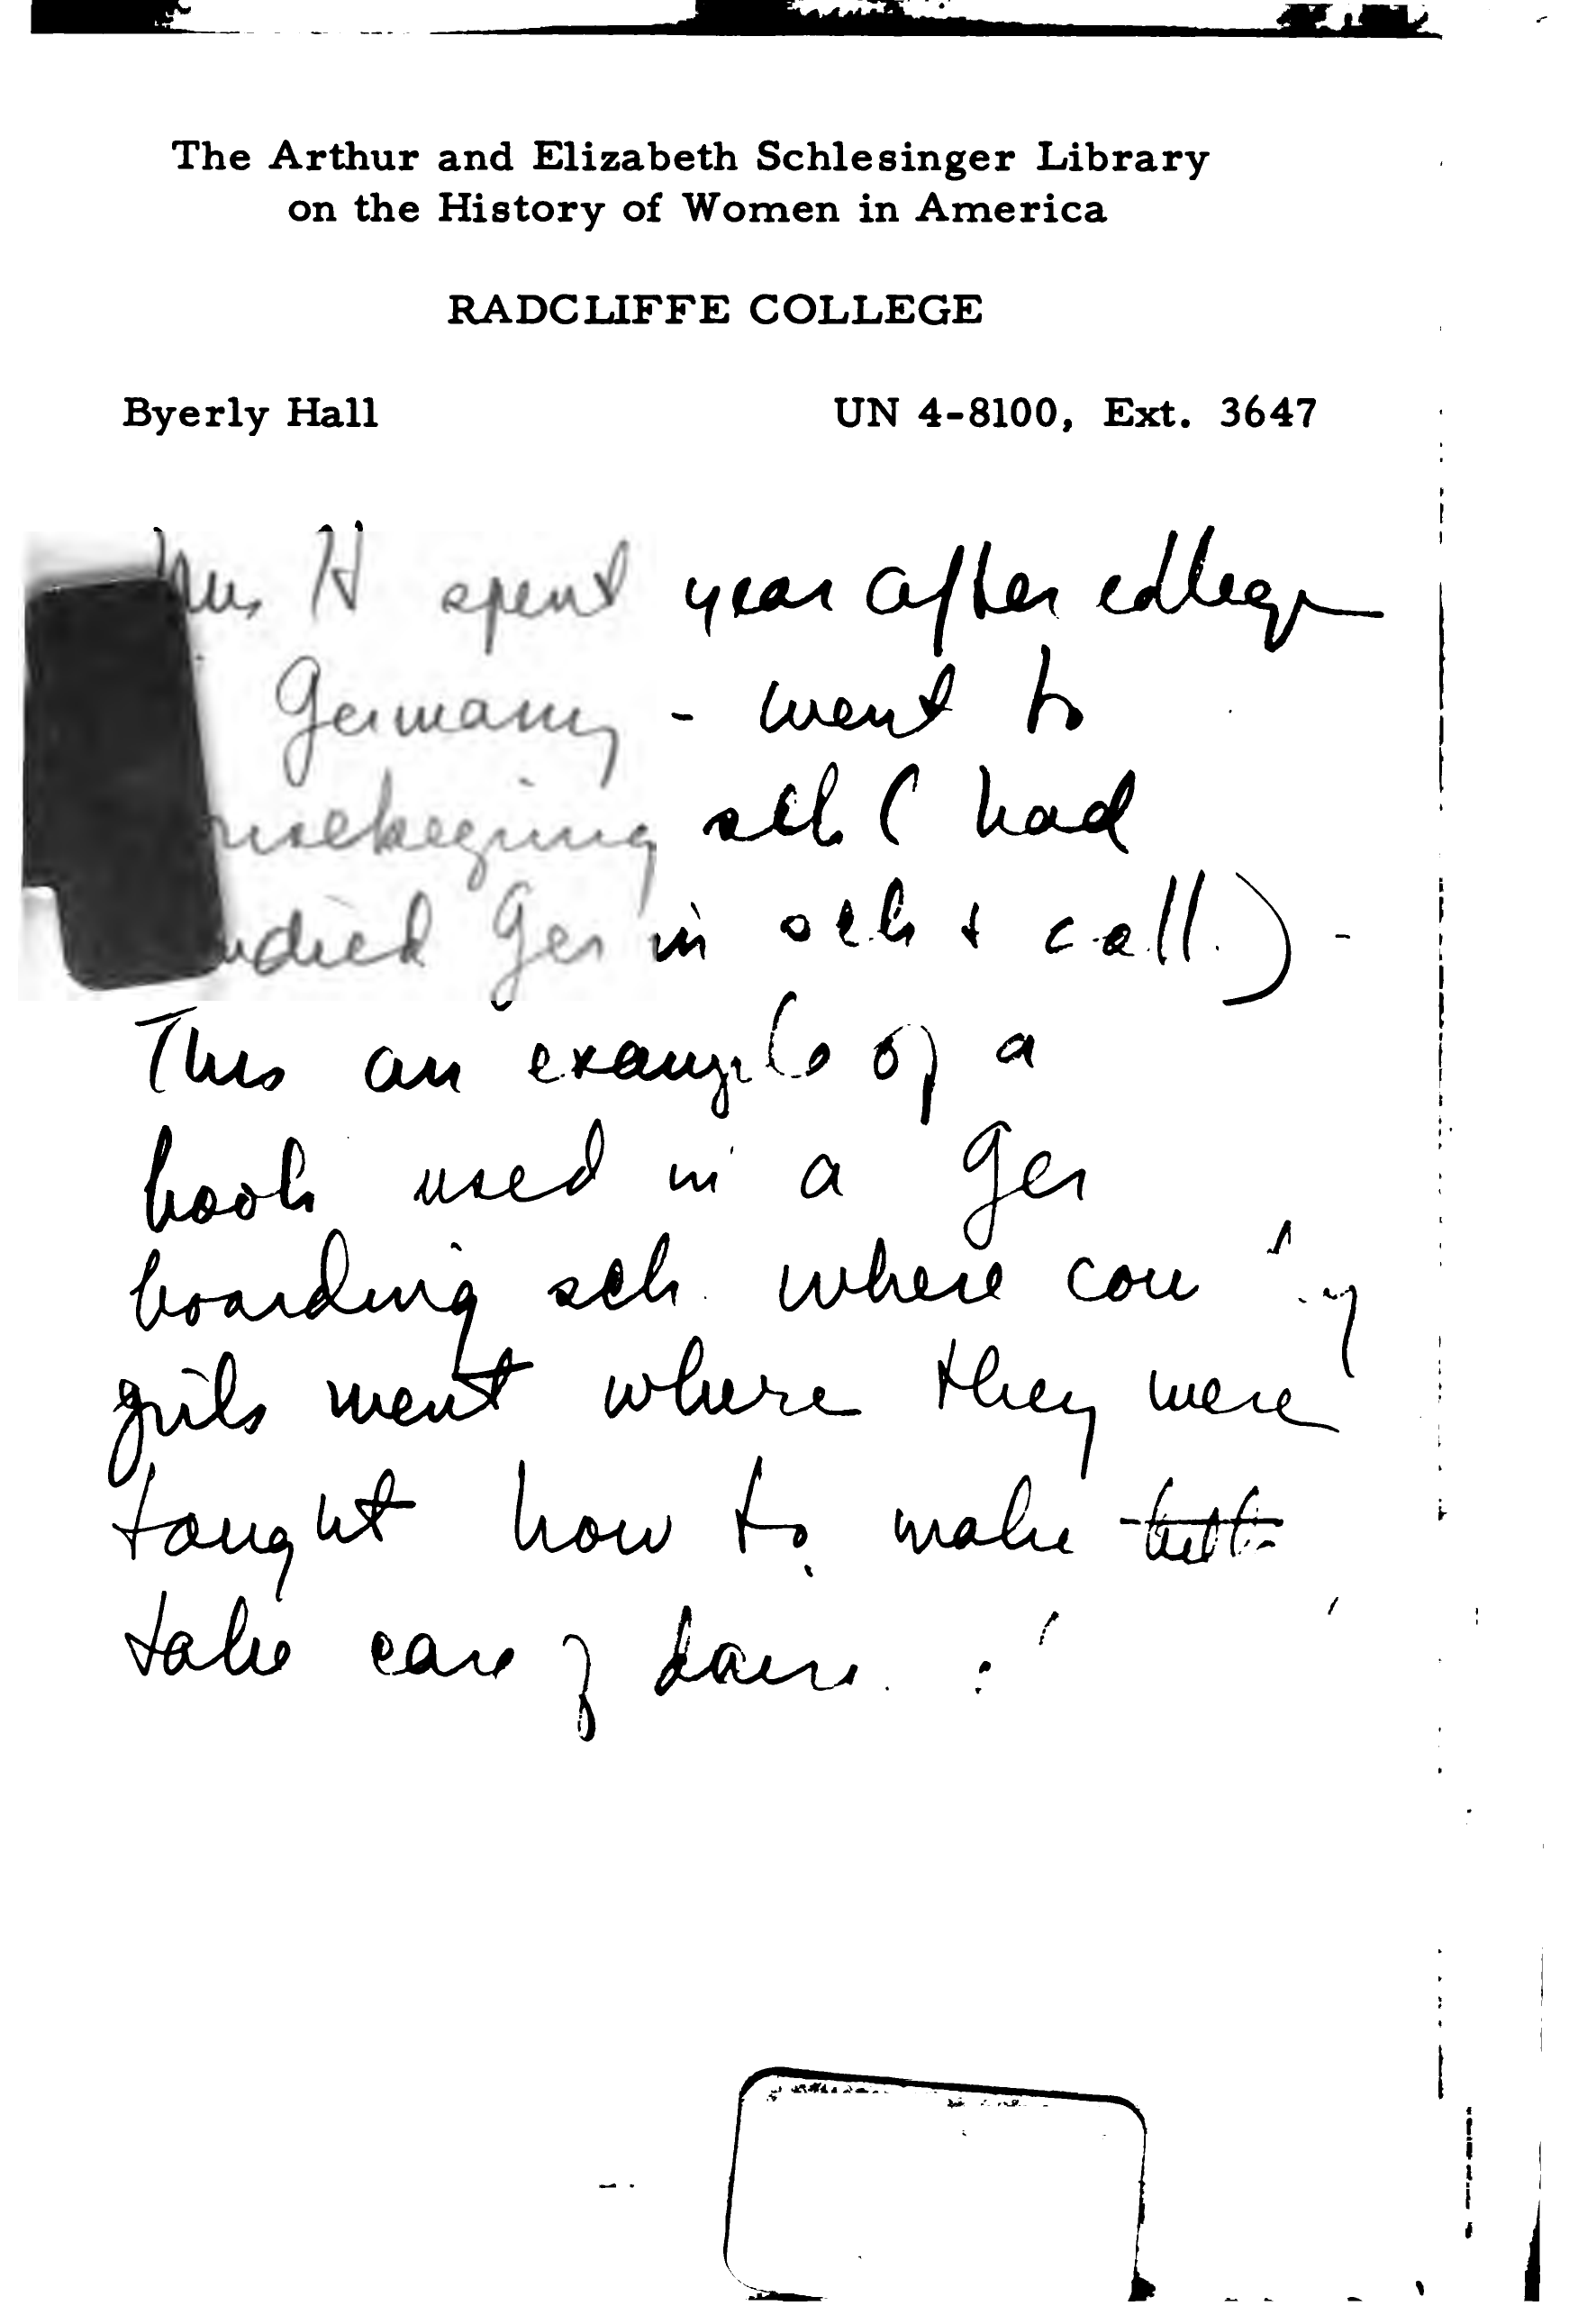 The Arthur and Elizabeth Schlesinger Library
on the History of Women in America
RADCLIFFE COLLEGE
Byerly Hall UN 4-8100, Ext. 3647
Mrs H spent year after college
Germany - went to
usekeeping sch (had
udied Ger in sch & coll.) -
This an example of a
book used in a Ger
boarding sch. where
girls went where they were
taught how to make
take care of